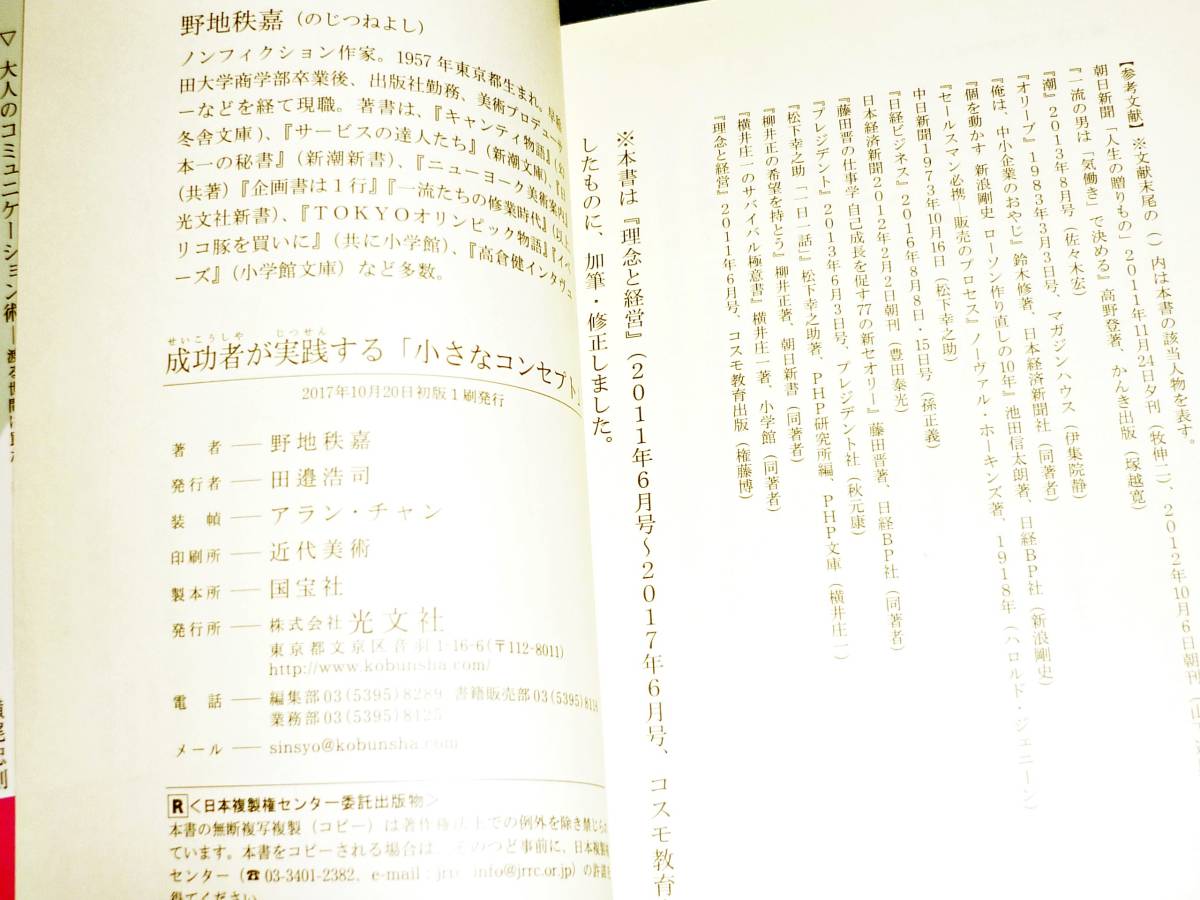 【参考文献】 ※文献末尾の（ ）内は本書の該当人物を表す。
朝日新聞「人生の贈りもの」2011年11月24日夕刊（牧伸二）、2012年10月6日朝刊
『一流の男は「気働き」で決める』高野登著、かんき出版（塚越寛）
『潮』2013年8月号（佐々木宏）
『オリーブ』1983年3月3日号、マガジンハウス（伊集院静）
『俺は、中小企業のおやじ』鈴木修著、日本経済新聞社（同著者）
『個を動かす 新浪剛史 ローソン作り直しの10年』池田信太朗著、日経BP社（新浪剛史）
『セールスマン必携 販売のプロセス』ノーヴァル・ホーキンズ著、1918年（ハロルド・ジェニーン）
中日新聞1973年10月16日（松下幸之助）
『日経ビジネス』2016年8月8日・15日号（孫正義）
日本経済新聞2012年2月2日朝刊（豊田泰光）
『藤田晋の仕事学 自己成長を促す77の新セオリー』藤田晋著、日経BP社（同著者）
『プレジデント』2013年6月3日号、プレジデント社（秋元康）
『松下幸之助「一日一話」』松下幸之助著、PHP研究所編、PHP文庫（横井庄一）
『柳井正の希望を持とう』柳井正著、朝日新書（同著者）
『横井庄一のサバイバル極意書』横井庄一著、小学館（同著者）
『理念と経営』2011年6月号、コスモ教育出版（権藤博）
※本書は『理念と経営』（2011年6月号〜2017年6月号、コスモ教育
したものに、加筆・修正しました。
野地秩嘉（のじつねよし）
ノンフィクション作家。1957年東京都生まれ。早稲
田大学商学部卒業後、出版社勤務、美術プロデュー
ーなどを経て現職。著書は、『キャンティ物語』（幻
冬舎文庫）、『サービスの達人たち』（新潮文庫）、『日
本一の秘書』（新潮新書）、『ニューヨーク美術案内』
（共著）『企画書は1行』『一流たちの修業時代』（以上、
光文社新書）、『TOKYOオリンピック物語』『イベ
リコ豚を買いに』（共に小学館）、『高倉健インタヴュ
ーズ』（小学館文庫）など多数。
せいこうしゃ じっせん
成功者が実践する「小さなコンセプト」
2017年10月20日初版1刷発行
著者 ― 野地秩嘉
発行者 ― 田邉浩司
装幀 ― アラン・チャン
印刷所 ― 近代美術
製本所 ― 国宝社
発行所 ― 株式会社 光文社
東京都文京区音羽1-16-6(〒112-8011)
http://www.kobunsha.com/
電話 ― 編集部03(5395)8289 書籍販売部03(5395)8116
業務部03(5395)8125
メール ― sinsyo@kobunsha.com
R＜日本複製権センター委託出版物＞
本書の無断複写複製（コピー）は著作権法上での例外を除き禁じられ
ています。本書をコピーされる場合は、そのつど事前に、日本複製権
センター（☎03-3401-2382、e-mail : jrrc_info@jrrc.or.jp）の許諾を
得てください。
▽ 大人のコミュニケーション術―渡る世間は
横尾忠則